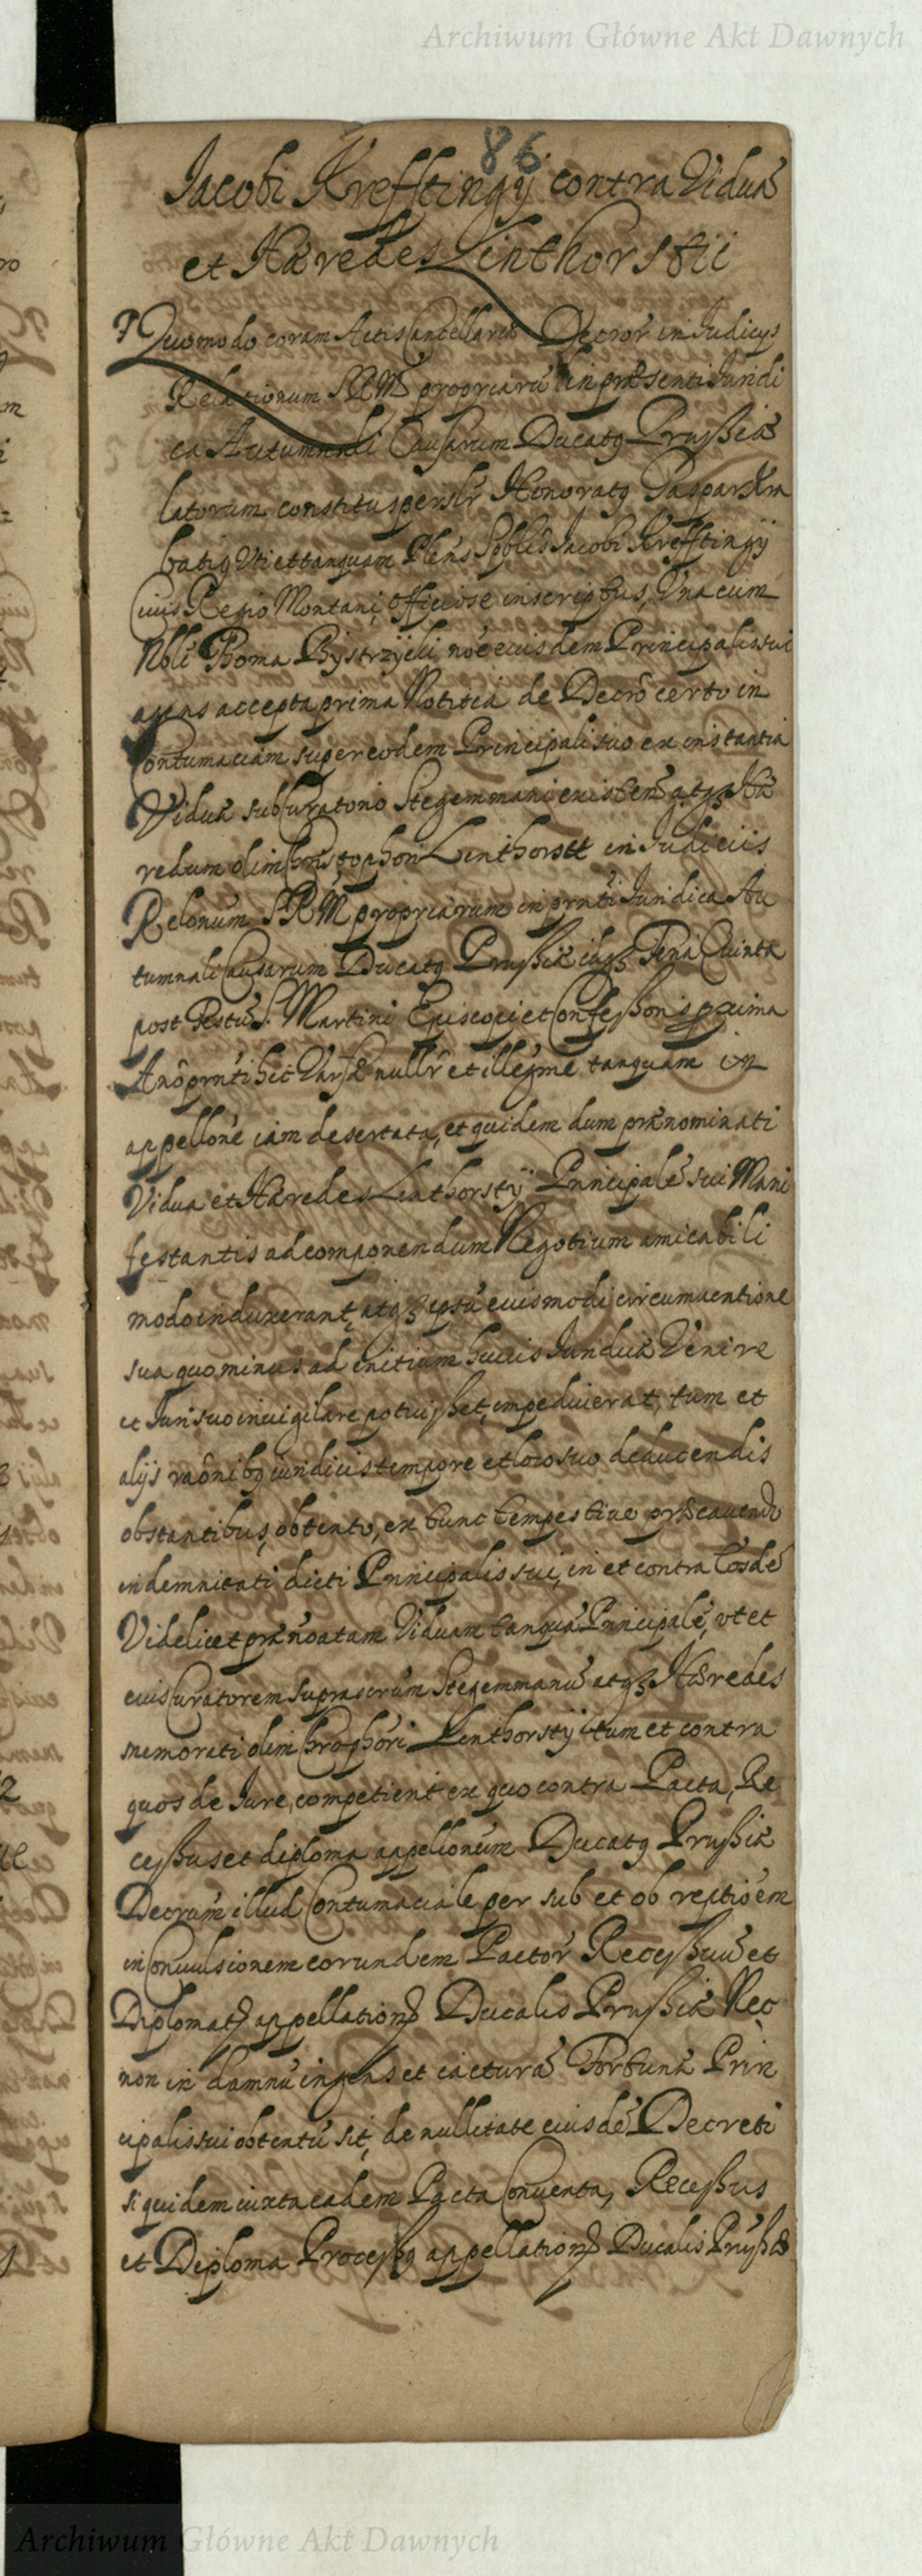 Archiwum Główne Akt Dawnych
86
Jacobi Krefftingij contra Viduã
et Hæredes Linthorstii
Quomodo coram Actis Cancellariæ Decror in Judicijs
Relationum S R M propriarũ in præsenti Juridi
ca Autumnali Causarum Ducatq Prussiæ
latorum constitus persr Honoratq Gaspar Kra
batiq Uti et tanquam Plens Spblis Jacobi Krefftingij
civis Regio Montani officiose inscriptus, Una cum
Nobli Thoma Bystrzycki nõe eiusdem Principalis sui
agens accepta prima Notitia de Decrõ certo in
Contumaciam super eodem Principali suo ex instantia
Viduæ sub Curatorio Stegemmani existeñ atqȝ Hæ
redum olim Christophori Linthorstt in Judiciis
Relonum S R M propriarum in prñti Juridica Au
tumnali Causarum Ducatq Prussiæ Feria Quinta
post Festũ S. Martini Episcopi et Confessoris proxima
Anõ prñti hic Vars nullr et illegme tanquam in
appellõne iam desertata, et quidem dum prænominati
Vidua et Hæredes Linthorstij Principalẽ sui Mani
festantis ad componendum Negotium amicabili
modo induxerant, atqȝ ipsũ eiusmodi circumventione
sua quo minus ad initium huius Juridicæ Venire
et Juri suo invigilare potuisset, impedivierat, tum et
alijs raõnibq iuridicis tempore et loco suo deducendis
obstantibus, obtento, ex tunc tempestive præcavendo
indemnitati dicti Principalis sui, in et contra Eosdẽ
Videlicet prænõatam Viduam tanquã Principalẽ, ut et
eius Curatorem suprascrum Stegemmanũ atqȝ Hæredes
memorati olim Chrophori Linthorstij tum et contra
quos de Jure competient ex quo contra Pacta, Re
cessus et diploma appellionum Ducatq Prussiæ
Decrum illud Contumaciale per sub et obreptiõem
in Convulsionem eorundem Pactor Recessuũ et
Diplomatȝ appellationȝ Ducalis Prussiæ Nec
non in damnũ ingens et iacturã Fortunæ Prin
cipalis sui obtentũ sit, de nullitate eiusdẽ Decreti
siquidem iuxta eadem Pacta Conventa, Recessus
et Diploma Processq appellationȝ Ducalis Prussiæ
Archiwum Główne Akt Dawnych